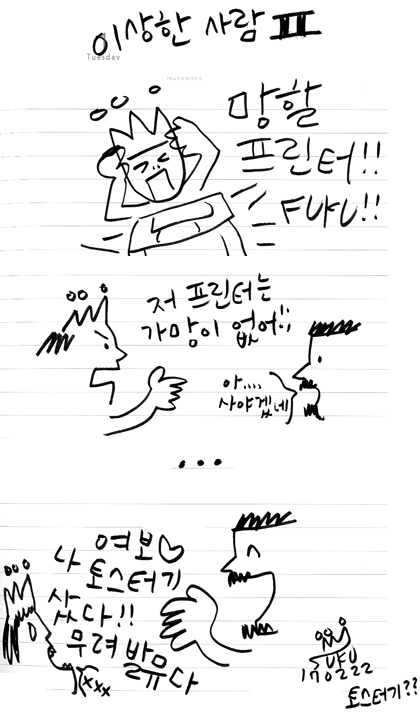 이상한 사람 III
Tuesday
망할
프린터!!
FUFU!!
저 프린터는
가망이 없어!!
아....
사야겠네
...
여보♡
나 토스터기
샀다!!
무려 발뮤다
xxx
SUFU
170222
토스터기??